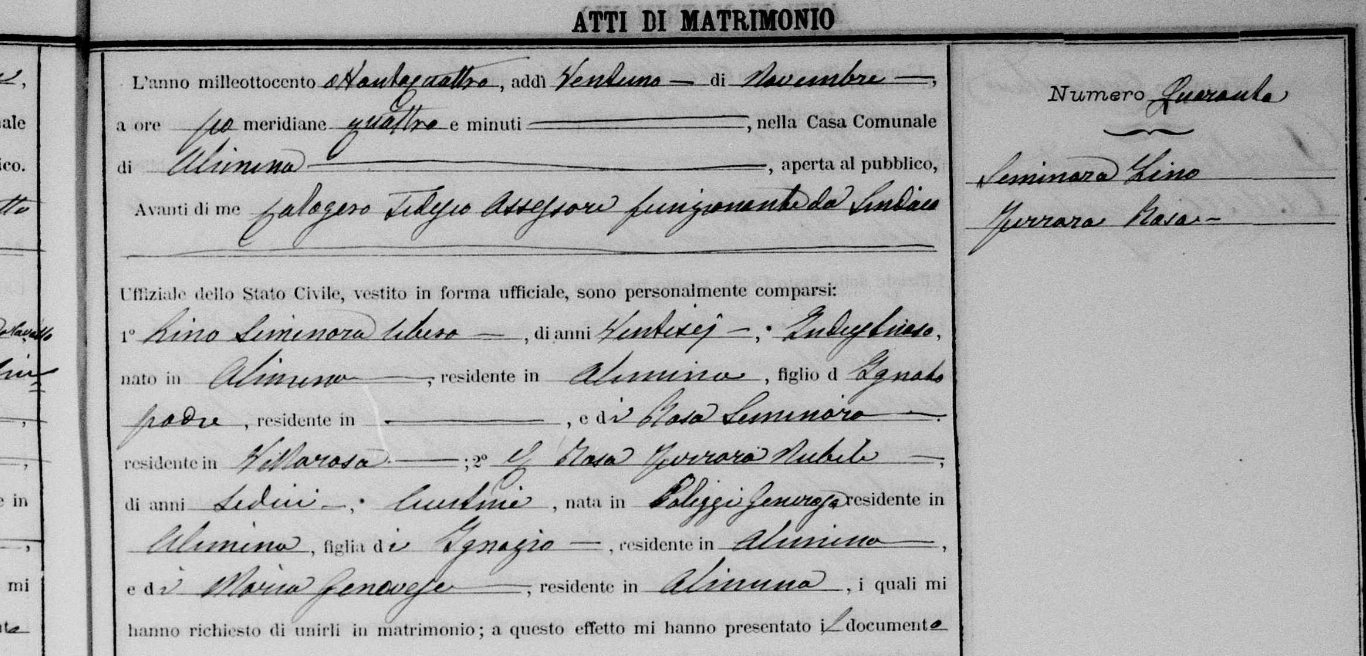 ATTI DI MATRIMONIO
L'anno milleottocento ottantaquattro, addì Ventuno — di Novembre —,
a ore po meridiane quattro e minuti ———, nella Casa Comunale
di Alimena ———, aperta al pubblico,
Avanti di me Calogero Tedesco Assessore funzionante da Sindaco
Uffiziale dello Stato Civile, vestito in forma ufficiale, sono personalmente comparsi:
1º Lino Seminara libero —, di anni Ventisej —, Industrioso,
nato in Alimena —, residente in Alimena, figlio d Ignoto
padre, residente in ———, e di Rosa Seminara —
residente in Villarosa —; 2º E Rosa Ferrara Nubile —,
di anni Sedici —, , nata in Polizzi Generosa residente in
Alimena, figlia di Ignazio —, residente in Alimena —,
e di Maria Genovese —, residente in Alimena, i quali mi
hanno richiesto di unirli in matrimonio; a questo effetto mi hanno presentato il documento
Numero Quaranta
Seminara Lino
Ferrara Rosa —
ale
ico.
e in
mi